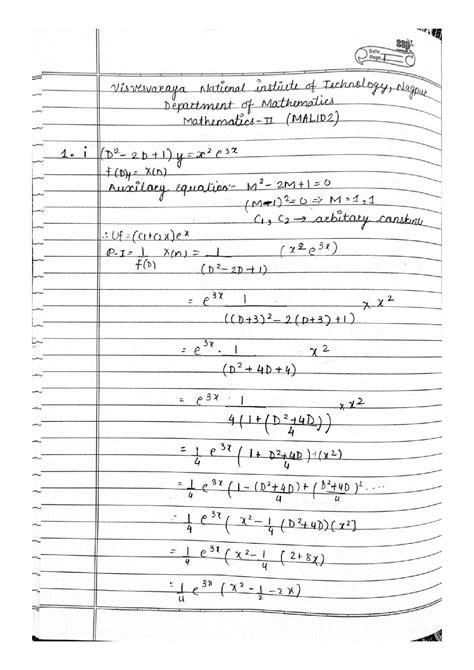 SSP
Date
Page 1
Visvesvaraya National instiute of Technology, Nagpur
Department of Mathematics
Mathematics-II (MAL102)
1. i (D²-2D+1) y = x² e^3x
f(D)y = X(n)
Auxilary equation- M²-2M+1=0
(M-1)²=0 => M=1,1
C₁, C₂ → arbitary constant
∴ Uf=(C1+C2x)e^x
P.I = 1/f(D) X(n) = 1/(D²-2D+1) (x² e^3x)
= e^3x 1/((D+3)²-2(D+3)+1) x x²
= e^3x . 1/(D²+4D+4) x²
= e^3x . 1/4(1+(D²+4D)/4) x x²
= 1/4 e^3x (1+ D²+4D/4)⁻¹(x²)
= 1/4 e^3x (1-(D²+4D)/4+(D²+4D/4)² ....
= 1/4 e^3x (x²-1/4 (D²+4D)(x²]
= 1/4 e^3x (x²-1/4 (2+8x)
= 1/4 e^3x (x²-1/2-2x)